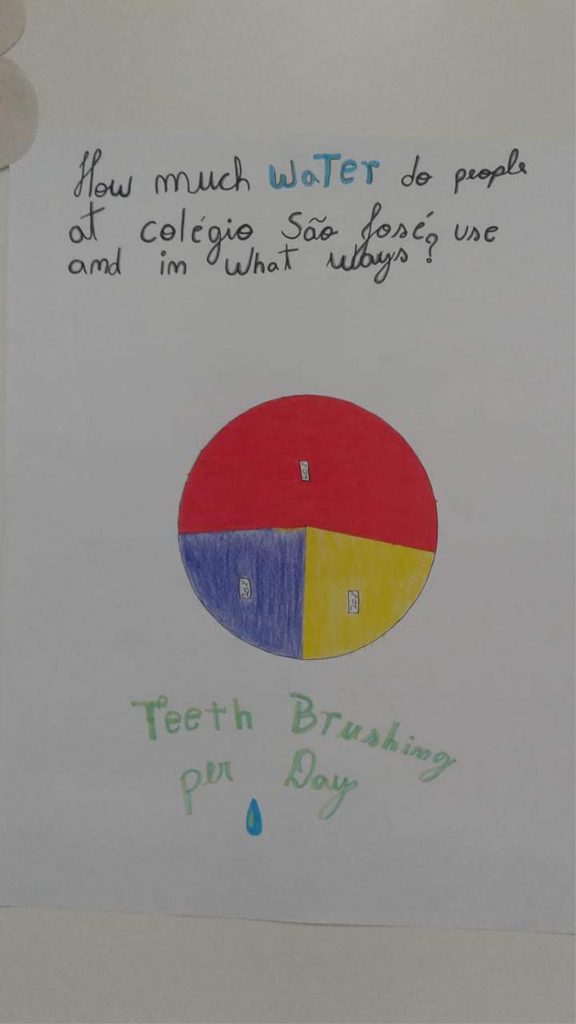 How much WaTer do people
at colégio São José? use
and in what ways?
20%
Teeth Brushing
per Day